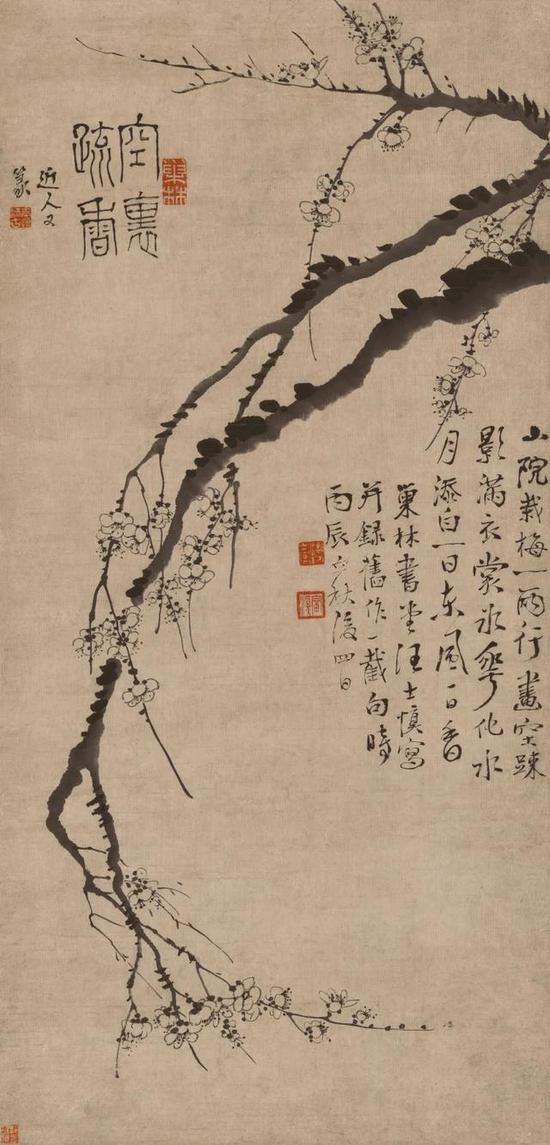 空裏
疏香
近人又
篆
山院栽梅一兩行畫空踈
影滿衣裳冰華化水
月添白一日東風一日香
巢林書堂汪士慎寫
并錄舊作一截句時
丙辰立秋後四日